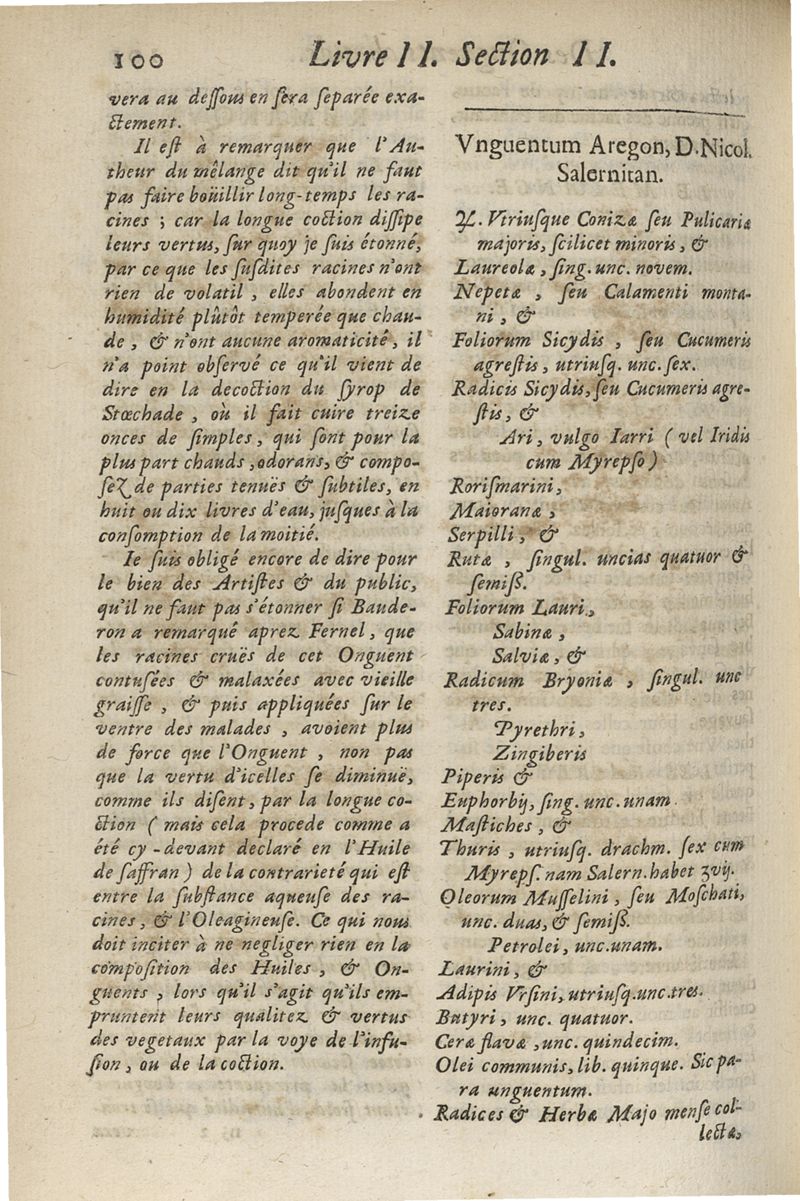 100 Livre II. Section II.
vera au dessous en sera separée exa-
ctement.
Il est à remarquer que l'Au-
theur du mêlange dit qu'il ne faut
pas faire boüillir long-temps les ra-
cines ; car la longue coction dissipe
leurs vertus, sur quoy je suis étonné,
par ce que les susdites racines n'ont
rien de volatil , elles abondent en
humidité plûtôt temperée que chau-
de , & n'ont aucune aromaticité, il
n'a point observé ce qu'il vient de
dire en la decoction du syrop de
Stœchade , où il fait cuire treize
onces de simples, qui sont pour la
plus part chauds ,odorans, & compo-
sez de parties tenuës & subtiles, en
huit ou dix livres d'eau, jusques à la
consomption de la moitié.
Ie suis obligé encore de dire pour
le bien des Artistes & du public,
qu'il ne faut pas s'étonner si Baude-
ron a remarqué aprez Fernel, que
les racines cruës de cet Onguent
contusées & malaxées avec vieille
graisse , & puis appliquées sur le
ventre des malades , avoient plus
de force que l'Onguent , non pas
que la vertu d'icelles se diminuë,
comme ils disent, par la longue co-
ction ( mais cela procede comme a
été cy-devant declaré en l'Huile
de saffran ) de la contrarieté qui est
entre la substance aqueuse des ra-
cines, & l'Oleagineuse. Ce qui nous
doit inciter à ne negliger rien en la
composition des Huiles , & On-
guents , lors qu'il s'agit qu'ils em-
pruntent leurs qualitez & vertus
des vegetaux par la voye de l'infu-
sion, ou de la coction.
Vnguentum Aregon, D. Nicol.
Salernitan.
℞. Vtriusque Conizæ seu Pulicariæ
majoris, scilicet minoris, &
Laureolæ , sing. unc. novem.
Nepetæ , seu Calamenti monta-
ni , &
Foliorum Sicydis , seu Cucumeris
agrestis , utriusq. unc. sex.
Radicis Sicydis, seu Cucumeris agre-
stis, &
Ari, vulgo Iarri ( vel Iridis
cum Myrepso )
Rorismarini,
Maioranæ ,
Serpilli, &
Rutæ , singul. uncias quatuor &
semiss.
Foliorum Lauri,
Sabinæ ,
Salviæ , &
Radicum Bryoniæ , singul. unc
tres.
Pyrethri,
Zingiberis
Piperis &
Euphorbij, sing. unc. unam.
Mastiches , &
Thuris , utriusq. drachm. sex cum
Myreps. nam Salern. habet ʒvij.
Oleorum Musselini , seu Moschati,
unc. duas, & semiss.
Petrolei, unc. unam.
Laurini, &
Adipis Vrsini, utriusq. unc. tres.
Butyri, unc. quatuor.
Ceræ flavæ , unc. quindecim.
Olei communis, lib. quinque. Sic pa-
ra unguentum.
Radices & Herbæ Majo mense col-
lectæ,